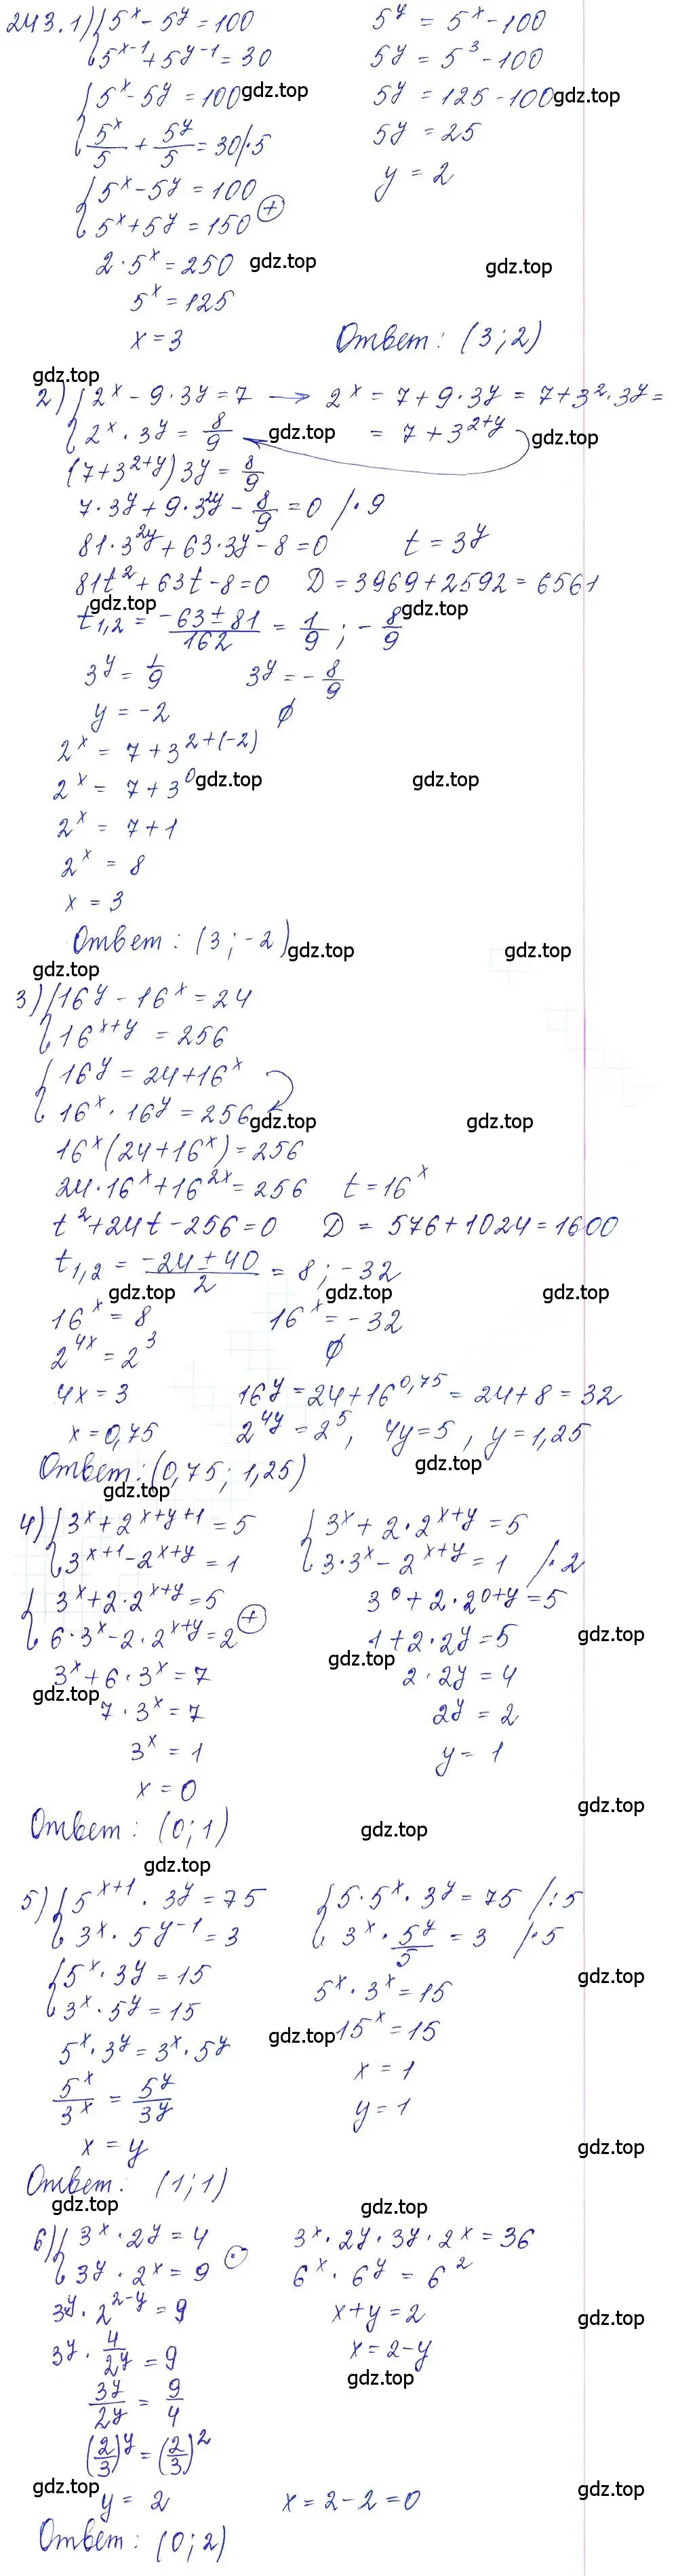 243.1) { 5^x - 5^y = 100
5^{x-1} + 5^{y-1} = 30
{ 5^x - 5^y = 100 gdz.top
5^x/5 + 5^y/5 = 30 |·5
{ 5^x - 5^y = 100
5^x + 5^y = 150 ⊕
2·5^x = 250 gdz.top
5^x = 125
x = 3
5^y = 5^x - 100
5^y = 5^3 - 100
5^y = 125 - 100 gdz.top
5^y = 25
y = 2
gdz.top
Ответ: (3; 2)
gdz.top
2) { 2^x - 9·3^y = 7 → 2^x = 7 + 9·3^y = 7 + 3^2·3^y =
2^x·3^y = 8/9 gdz.top = 7 + 3^{2+y} gdz.top
(7 + 3^{2+y}) 3^y = 8/9
7·3^y + 9·3^{2y} - 8/9 = 0 /·9
81·3^{2y} + 63·3^y - 8 = 0 t = 3^y
81t^2 + 63t - 8 = 0 D = 3969 + 2592 = 6561
gdz.top gdz.top
t_{1,2} = (-63 ± 81)/162 = 1/9; -8/9
3^y = 1/9 3^y = -8/9
y = -2 ∅
2^x = 7 + 3^{2+(-2)}
2^x = 7 + 3^0 gdz.top gdz.top
2^x = 7 + 1
2^x = 8
x = 3
Ответ: (3; -2) gdz.top gdz.top
gdz.top
3) { 16^y - 16^x = 24
16^{x+y} = 256
{ 16^y = 24 + 16^x
16^x·16^y = 256 gdz.top gdz.top
16^x (24 + 16^x) = 256
24·16^x + 16^{2x} = 256 t = 16^x
t^2 + 24t - 256 = 0 D = 576 + 1024 = 1600
t_{1,2} = (-24 ± 40)/2 = 8; -32
gdz.top gdz.top gdz.top
16^x = 8 16^x = -32
2^{4x} = 2^3 ∅
4x = 3 16^y = 24 + 16^{0,75} = 24 + 8 = 32
x = 0,75 2^{4y} = 2^5, 4y = 5, y = 1,25
Ответ: (0,75; 1,25) gdz.top
gdz.top
4) { 3^x + 2^{x+y+1} = 5 { 3^x + 2·2^{x+y} = 5
3^{x+1} - 2^{x+y} = 1 3·3^x - 2^{x+y} = 1 /·2
{ 3^x + 2·2^{x+y} = 5 ⊕ 3^0 + 2·2^{0+y} = 5
6·3^x - 2·2^{x+y} = 2 1 + 2·2^y = 5 gdz.top
3^x + 6·3^x = 7 gdz.top 2·2^y = 4
gdz.top
7·3^x = 7 2^y = 2
3^x = 1 y = 1
x = 0
gdz.top
Ответ: (0; 1) gdz.top
gdz.top
5) { 5^{x+1}·3^y = 75 { 5·5^x·3^y = 75 /:5
3^x·5^{y-1} = 3 3^x·5^y/5 = 3 /·5
{ 5^x·3^y = 15 5^x·3^x = 15 gdz.top
3^x·5^y = 15 gdz.top 15^x = 15
5^x·3^y = 3^x·5^y x = 1
5^x/3^x = 5^y/3^y y = 1
x = y gdz.top
Ответ: (1; 1)
gdz.top gdz.top
6) { 3^x·2^y = 4 ⊙ 3^x·2^y·3^y·2^x = 36
3^y·2^x = 9 6^x·6^y = 6^2
3^y·2^{2-y} = 9 x + y = 2 gdz.top
3^y·4/2^y = 9 x = 2 - y
gdz.top
3^y/2^y = 9/4
(2/3)^y = (2/3)^2
gdz.top gdz.top
y = 2 x = 2 - 2 = 0
Ответ: (0; 2)